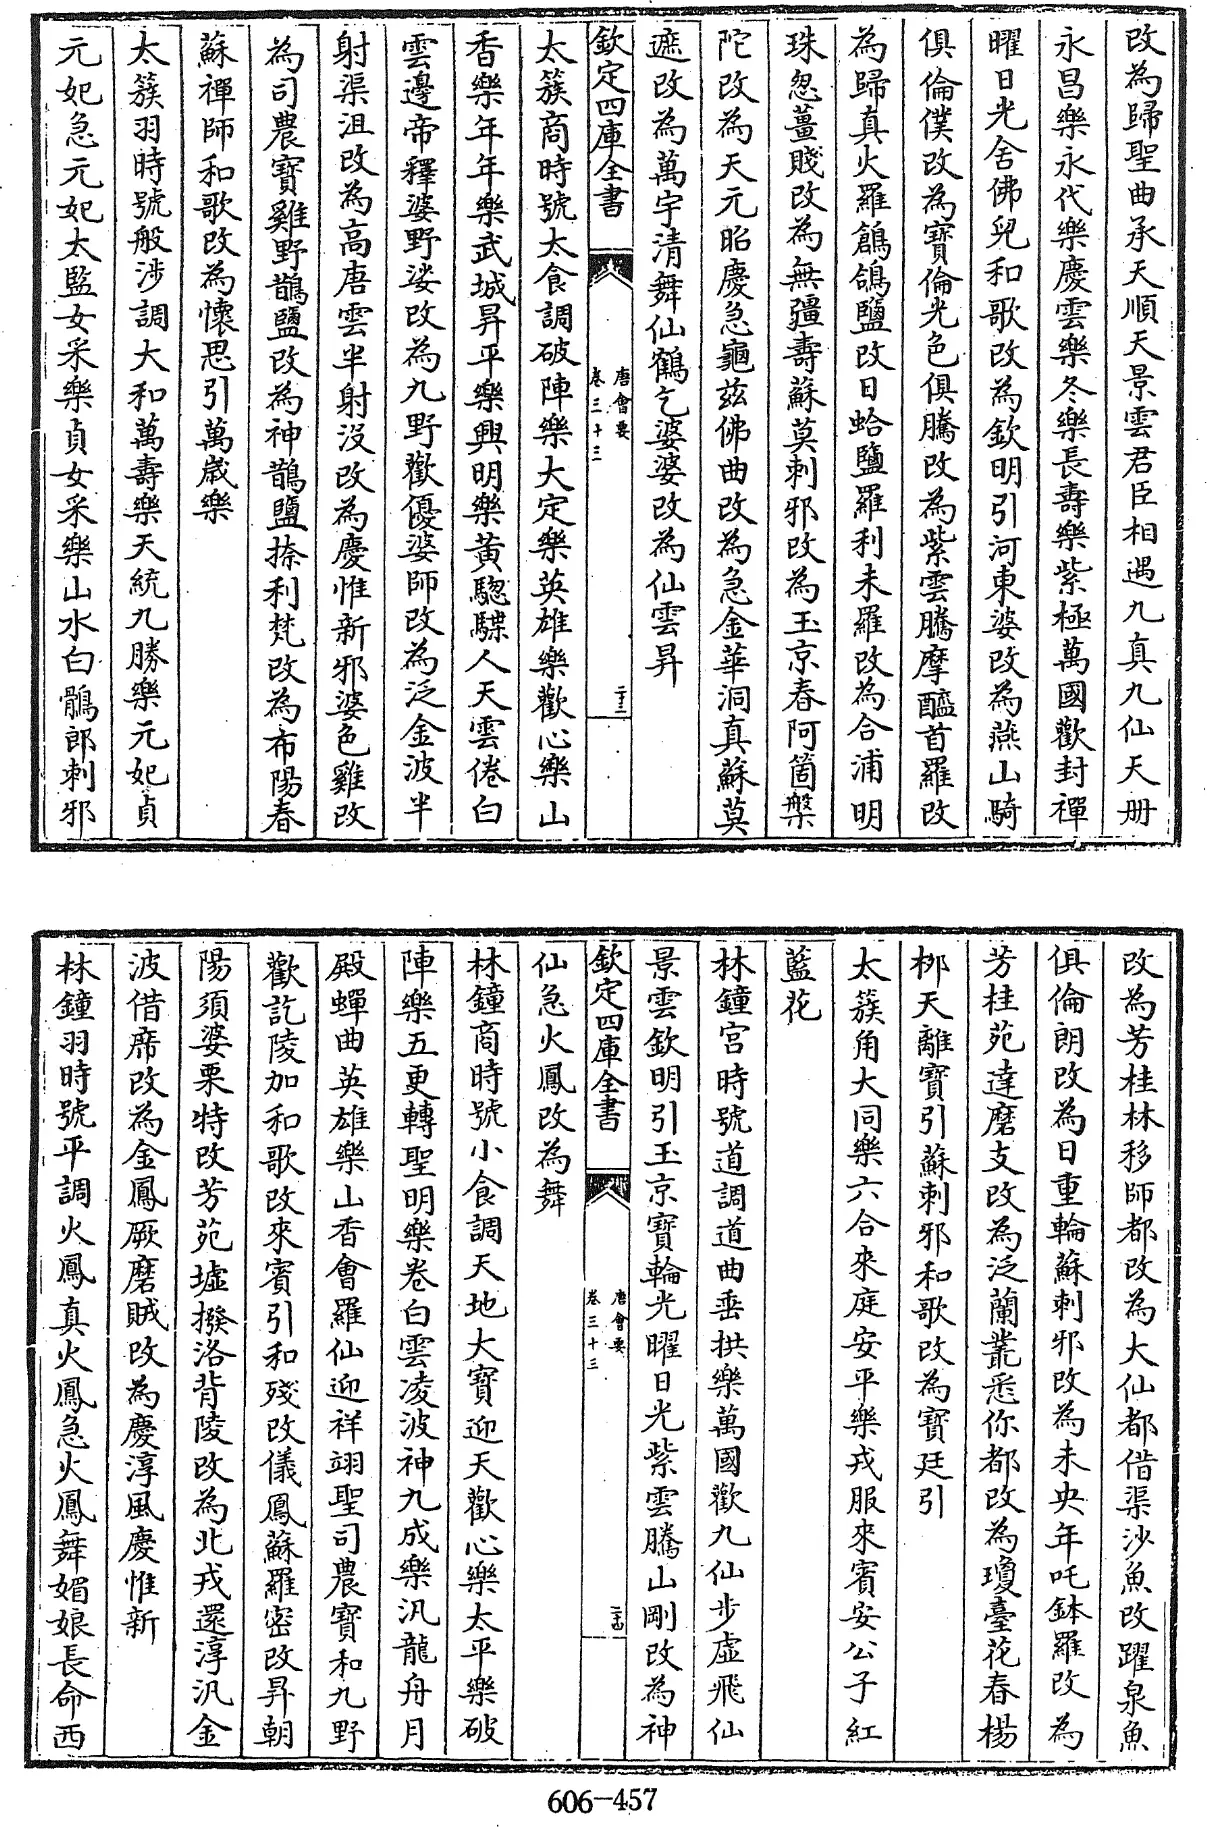 改為歸聖曲承天順天景雲君臣相遇九真九仙天冊
永昌樂永代樂慶雲樂冬樂長壽樂紫極萬國歡封禪
曜日光舍佛兒和歌改為欽明引河東婆改為燕山騎
俱倫僕改為寶倫光色俱騰改為紫雲騰摩醯首羅改
為歸真火羅鶬鴿鹽改日蛤鹽羅利未羅改為合浦明
珠忽薑賤改為無疆壽蘇莫刺邪改為玉京春阿箇槃
陀改為天元昭慶急龜茲佛曲改為急金華洞真蘇莫
遮改為萬宇清舞仙鶴乞婆婆改為仙雲昇
欽定四庫全書
唐會要
卷三十三
二十三
太簇商時號太食調破陣樂大定樂英雄樂歡心樂山
香樂年年樂武城昇平樂興明樂黃驄驃人天雲倦白
雲邊帝釋婆野娑改為九野歡優婆師改為泛金波半
射渠沮改為高唐雲半射沒改為慶惟新邪婆色雞改
為司農寶雞野鵲鹽改為神鵲鹽捺利梵改為布陽春
蘇禪師和歌改為懷思引萬歲樂
太簇羽時號般涉調大和萬壽樂天統九勝樂元妃貞
元妃急元妃太監女采樂貞女采樂山水白鶻郎刺邪
改為芳桂林移師都改為大仙都借渠沙魚改躍泉魚
俱倫朗改為日重輪蘇刺邪改為未央年吒鉢羅改為
芳桂苑達磨支改為泛蘭叢悉你都改為瓊臺花春楊
栁天離寶引蘇刺邪和歌改為寶廷引
太簇角大同樂六合來庭安平樂戎服來賓安公子紅
藍花
林鐘宮時號道調道曲垂拱樂萬國歡九仙步虛飛仙
景雲欽明引玉京寶輪光曜日光紫雲騰山剛改為神
欽定四庫全書
唐會要
卷三十三
二十四
仙急火鳳改為舞
林鐘商時號小食調天地大寶迎天歡心樂太平樂破
陣樂五更轉聖明樂卷白雲凌波神九成樂汎龍舟月
殿蟬曲英雄樂山香會羅仙迎祥翊聖司農寶和九野
歡訖陵加和歌改來賓引和殘改儀鳳蘇羅密改昇朝
陽須婆栗特改芳苑墟撥洛背陵改為北戎還淳汎金
波借席改為金鳳厥磨賊改為慶淳風慶惟新
林鐘羽時號平調火鳳真火鳳急火鳳舞媚娘長命西
606-457